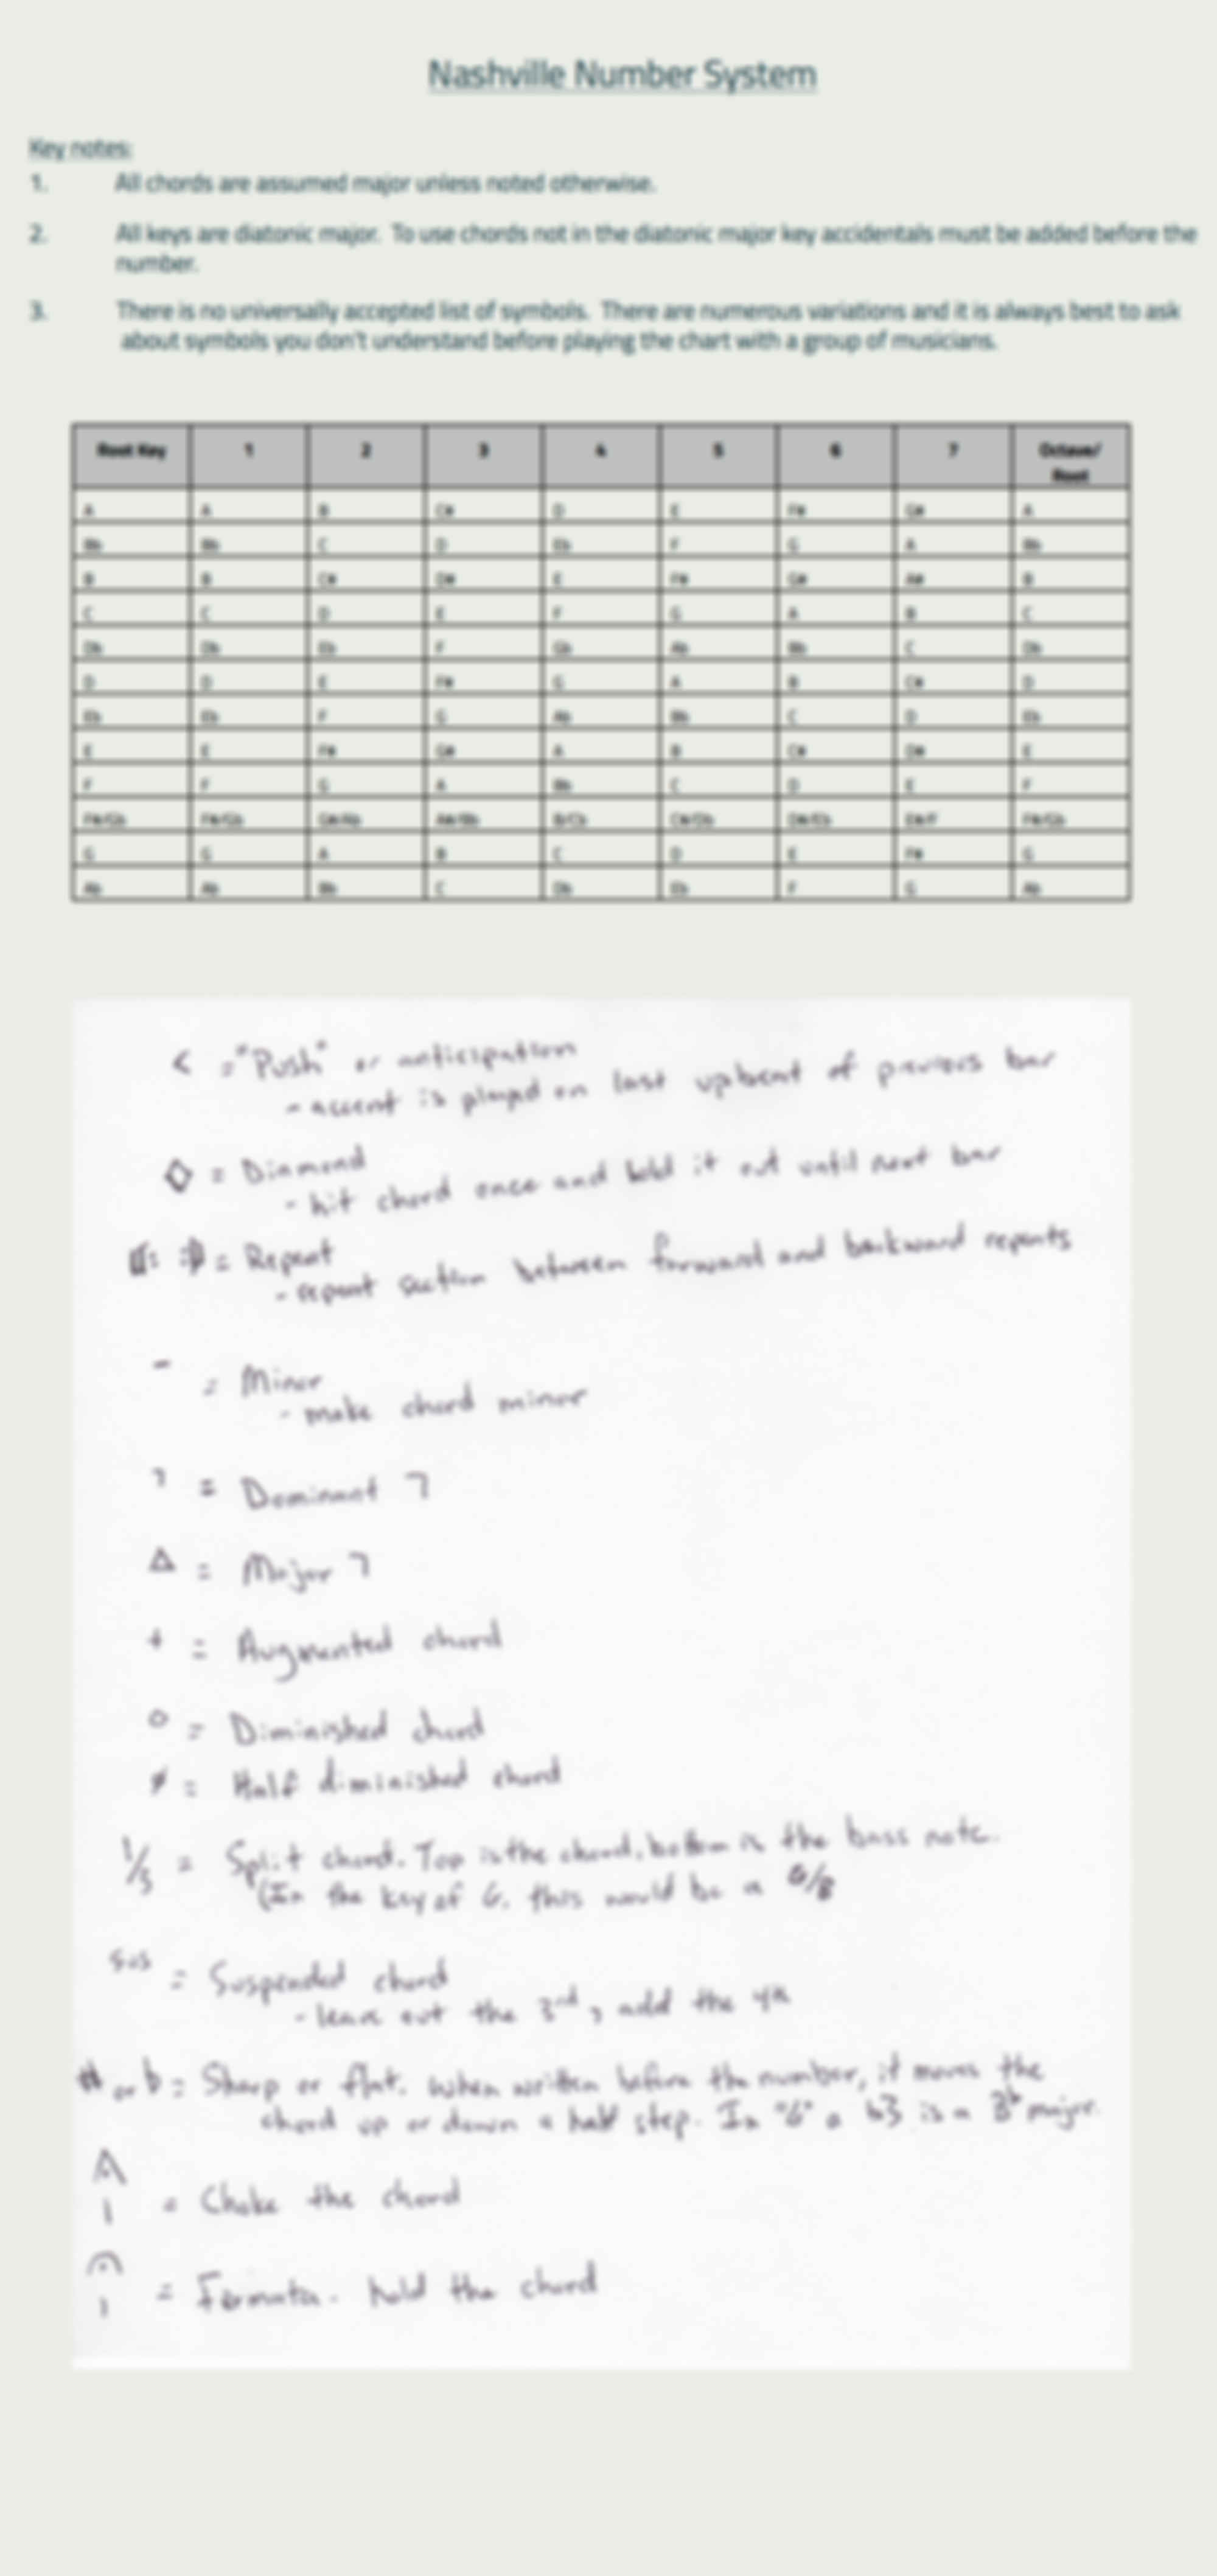 Nashville Number System
Key notes:
1. All chords are assumed major unless noted otherwise.
2. All keys are diatonic major. To use chords not in the diatonic major key accidentals must be added before the
number.
3. There is no universally accepted list of symbols. There are numerous variations and it is always best to ask
about symbols you don't understand before playing the chart with a group of musicians.
Root Key 1 2 3 4 5 6 7 Octave/
Root
A A B C# D E F# G# A
Bb Bb C D Eb F G A Bb
B B C# D# E F# G# A# B
C C D E F G A B C
Db Db Eb F Gb Ab Bb C Db
D D E F# G A B C# D
Eb Eb F G Ab Bb C D Eb
E E F# G# A B C# D# E
F F G A Bb C D E F
F#/Gb F#/Gb G#/Ab A#/Bb B/Cb C#/Db D#/Eb E#/F F#/Gb
G G A B C D E F# G
Ab Ab Bb C Db Eb F G Ab
< = "Push" or anticipation
- accent is played on last upbeat of previous bar
◇ = Diamond
- hit chord once and hold it out until next bar
‖: :‖ = Repeat
- repeat section between forward and backward repeats
- = Minor
- make chord minor
7 = Dominant 7
Δ = Major 7
+ = Augmented chord
o = Diminished chord
ø = Half diminished chord
1/3 = Split chord. Top is the chord, bottom is the bass note.
(In the key of G, this would be a G/B
sus = Suspended chord
- leave out the 3rd, add the 4th
# or b = Sharp or flat. When written before the number, it moves the
chord up or down a half step. In "G" a b3 is a Bb major.
^
1 = Choke the chord
𝄐
1 = Fermata. hold the chord